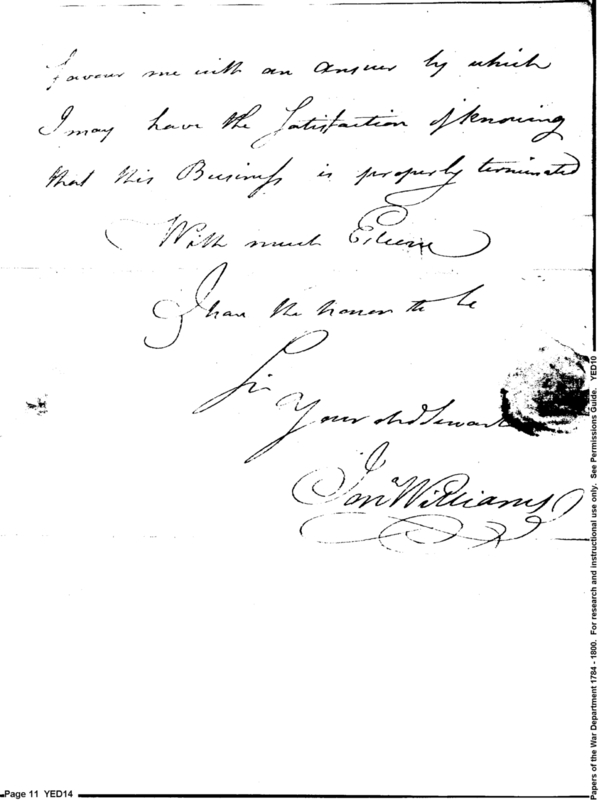 favour me with an answer by which
I may have the Satisfaction of knowing
that this Business is properly terminated
With much Esteem
I have the honor to be
Sir
Your obd Servant
Jonª Williams
Page 11 YED14
Papers of the War Department 1784 - 1800. For research and instructional use only. See Permissions Guide. YED10